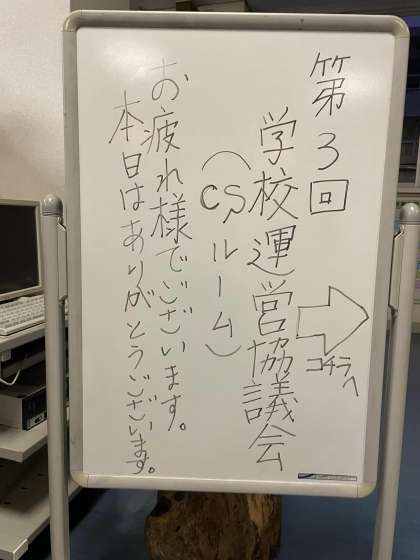 第3回
学校運営協議会
(CSルーム)
コチラへ
お疲れ様でございます。
本日はありがとうございます。